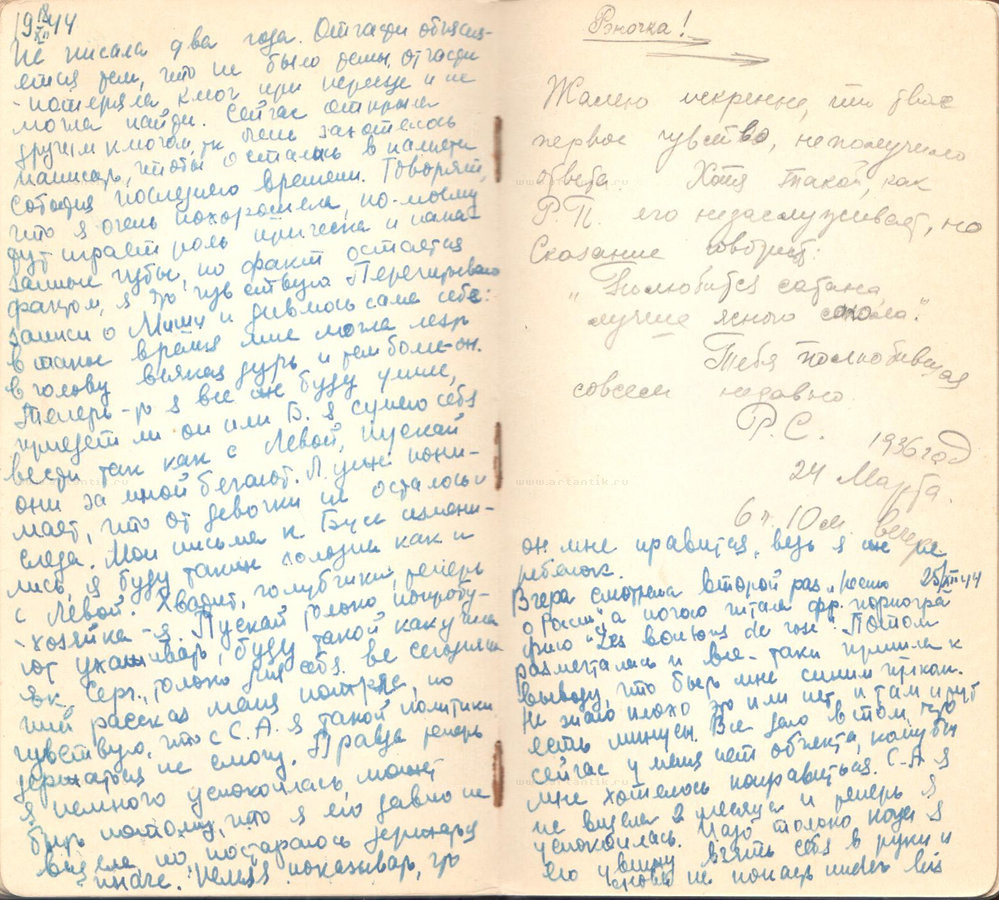 19 18/XII 44
Не писала два года. Отчасти объясня-
ется тем, что не было темы, отчасти
потеряла ключ при переезде и не
могла найти. Сейчас открыла
другим ключом, тк мне захотелось
написать, чтобы остались в памяти
события последнего времени. Говорят,
что я очень похорошела, по-моему
тут играет роль прическа и нама-
занные губы, но факт остается
фактом, я это чувствую. Перечитываю
записи о Мишу и дивлюсь сама себе:
в такое время мне могла лезть
в голову всякая дурь и тем более-он.
Теперь-то я все же буду умнее,
приедет ли он или Б. я сумею себя
вести так как с Левой, пускай
они за мной бегают. Л. уже пони-
мает, что от девочки не осталось и
следа. Мои письма к Бусе измени-
лись, я буду таким голозии как и
с Левой. Хватит, голубчики, теперь
хозяйка-я. Пускай только попробу-
ют ухаживать, буду такой как у
эк. Серг., только для себя. ве сегодняш
ний рассказ меня потряс, но
чувствую, что с С.А. я такой политики
держаться не смогу. Правда теперь
я немного успокоилась, может
быть потому, что я его давно не
видела но постараюсь держаться
иначе. Нельзя показывать, что
Рэночка!
Жалею искренне, что твое
первое чувство, неполучило
ответа. Хотя такой, как
Р.П. его незаслуживает, но
Сказание говорит:
„Полюбится сатана,
лучше ясного сокола."
Тебя полюбившая
совсем недавно
Р.С.
1936 год
24 Марта.
6 ч. 10 м вечера
он мне нравится, ведь я же не
ребенок.
25/XII 44
Вчера смотрела второй раз „Песнь
о России", а ночью читала фр. порногра
фию "Les boutons de rose". Потом
размечталась и все-таки пришла к
выводу, что быть мне синим чулком.
Не знаю плохо это или нет, и там и тут
есть минусы. Все дело в том, что
сейчас у меня нет объекта, кому бы
мне хотелось понравиться. С-А я
не видела 2 месяца и теперь я
успокоилась. Надо только когда я
его увижу взять себя в руки и
снова не попасть under his
www.artantik.ru
www.artantik.ru
www.artantik.ru
www.artantik.ru